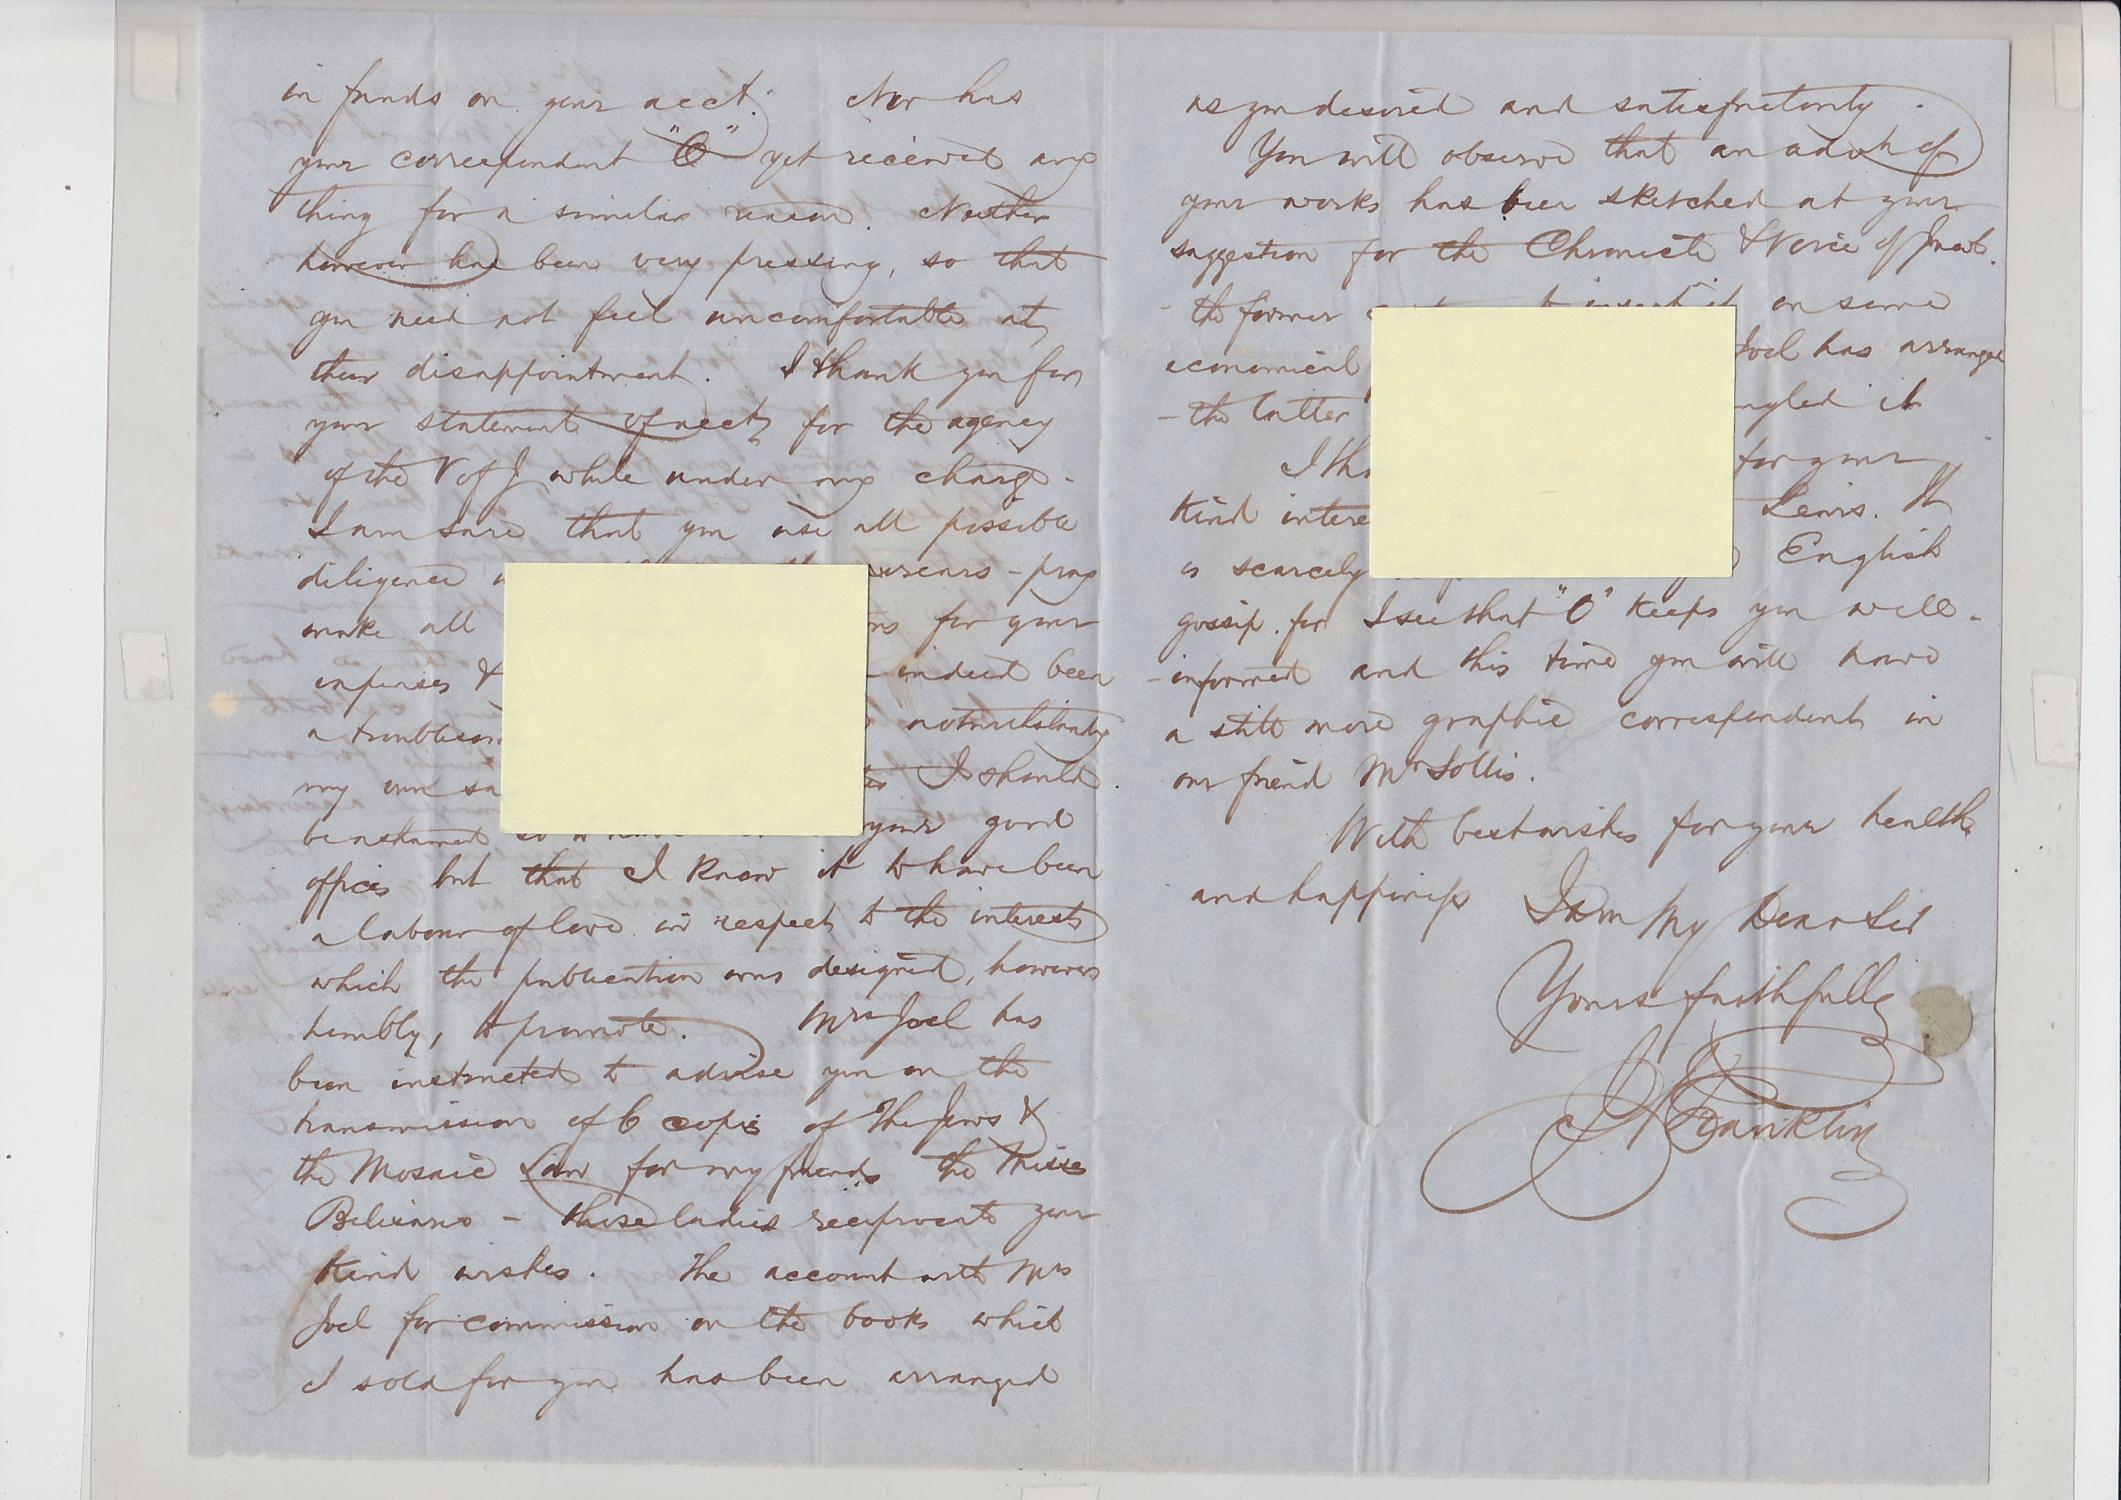 in funds on your acct. Nor has
your correspondent "O" yet received any
thing for a similar reason. Neither
however has been very pressing, so that
you need not feel uncomfortable at
their disappointment. I thank you for
your statement of acct for the agency
of the V of J while under my charge.
I am sure that you use all possible
diligence - pray
make all for your
expenses & indeed been
a notwithstanding
my own I should
be ashamed your good
offices but that I know it to have been
a labour of love in respect to the interests
which the publication was designed, however
humbly, to promote. Mrs Joel has
been instructed to advise you on the
transmission of 6 copies of The Jews &
the Mosaic Law for my friends the Misses
Belisario - those ladies reciprocate your
kind wishes. The account with Mrs
Joel for commission on the books which
I sold for you has been arranged
as you desired and satisfactorily.
You will observe that an advt of
your works has been sketched at your
suggestion for the Chronicle & Voice of Jacob.
- the former insert it on some
economical Joel has arranged
- the latter it
I for your
kind Lewis. It
is scarcely English
gossip. for I see that "O" keeps you well-
-informed and this time you will have
a still more graphic correspondent in
our friend Mr Sollis.
With best wishes for your health
and happiness I am My Dear Sir
Yours faithfully
J A Franklin